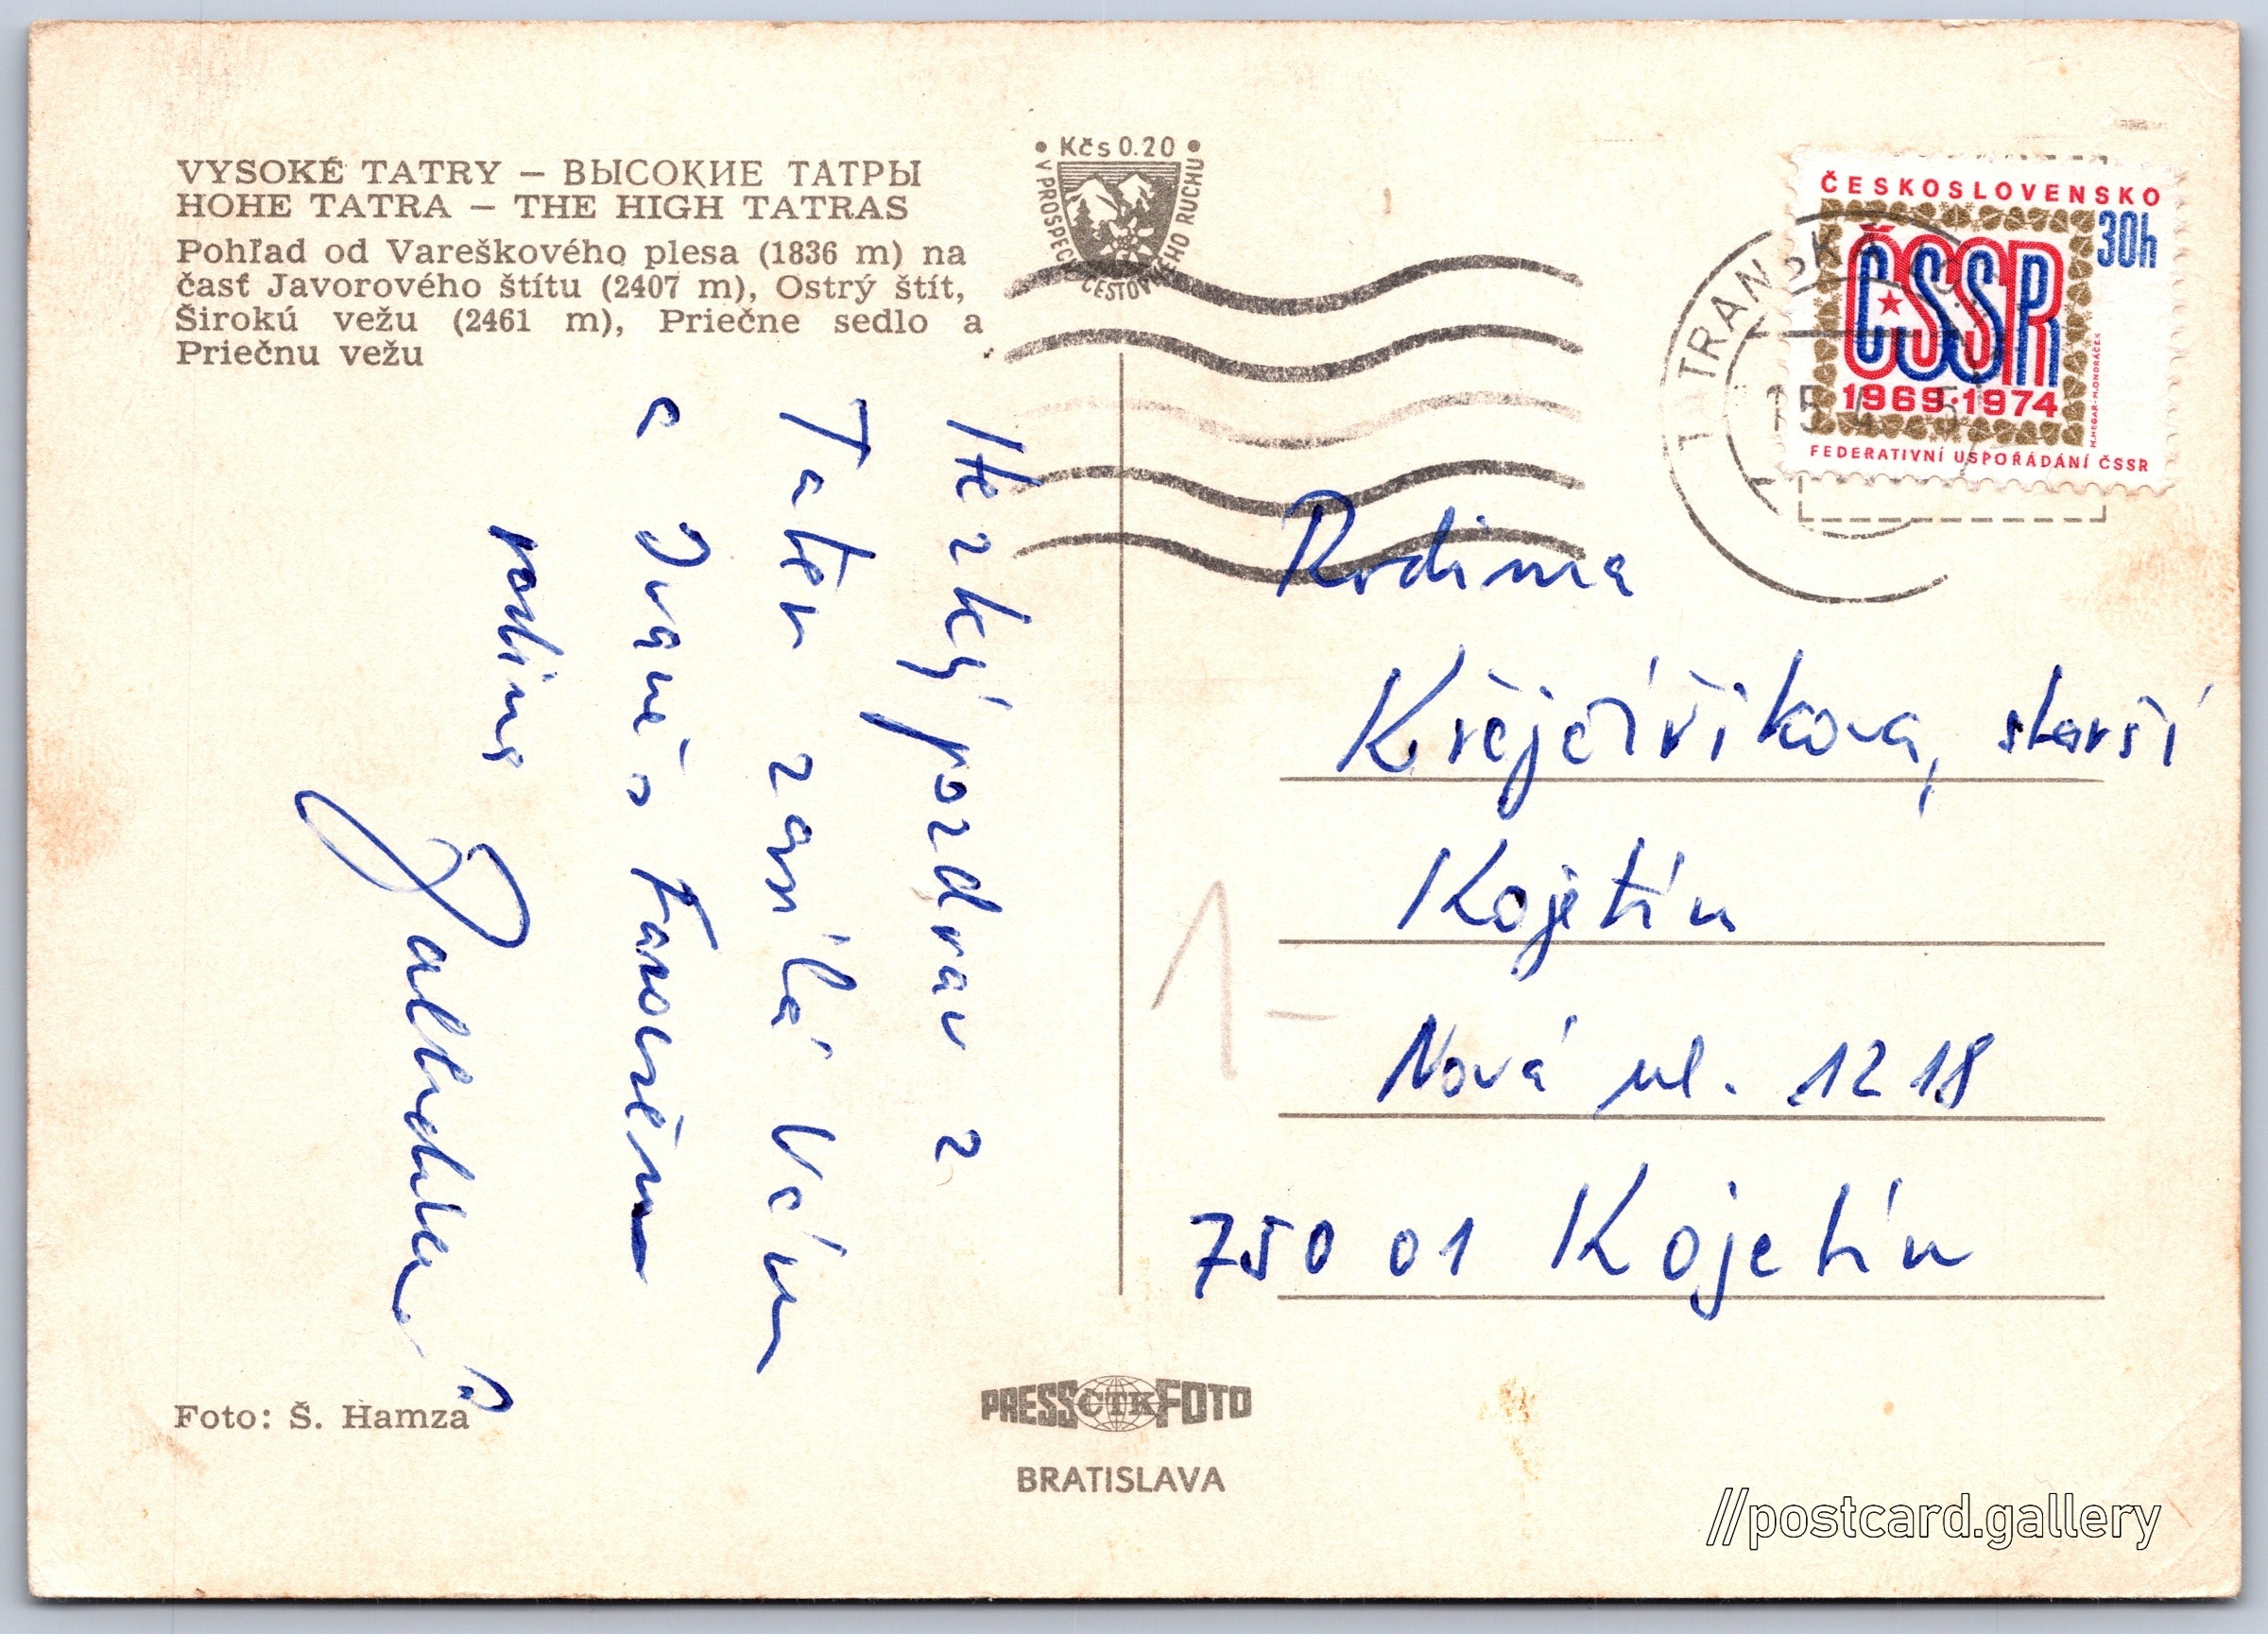 VYSOKÉ TATRY — ВЫСОКИЕ ТАТРЫ
HOHE TATRA — THE HIGH TATRAS
Pohľad od Vareškového plesa (1836 m) na
časť Javorového štítu (2407 m), Ostrý štít,
Širokú vežu (2461 m), Priečne sedlo a
Priečnu vežu
• Kčs 0.20 •
V PROSPECH CESTOVNÉHO RUCHU
ČESKOSLOVENSKO
30h
ČSSR
1969·1974
FEDERATIVNÍ USPOŘÁDÁNÍ ČSSR
M.HEGAR-M.ONDRÁČEK
TATRANSKÁ
15. 4. 75
Hezký pozdrav z
Tater zasílá Vám
a
rodina
Rodina
starší
Kojetín
Nová ul. 1218
750 01 Kojetín
1-
Foto: Š. Hamza
PRESS ČTK FOTO
BRATISLAVA
//postcard.gallery